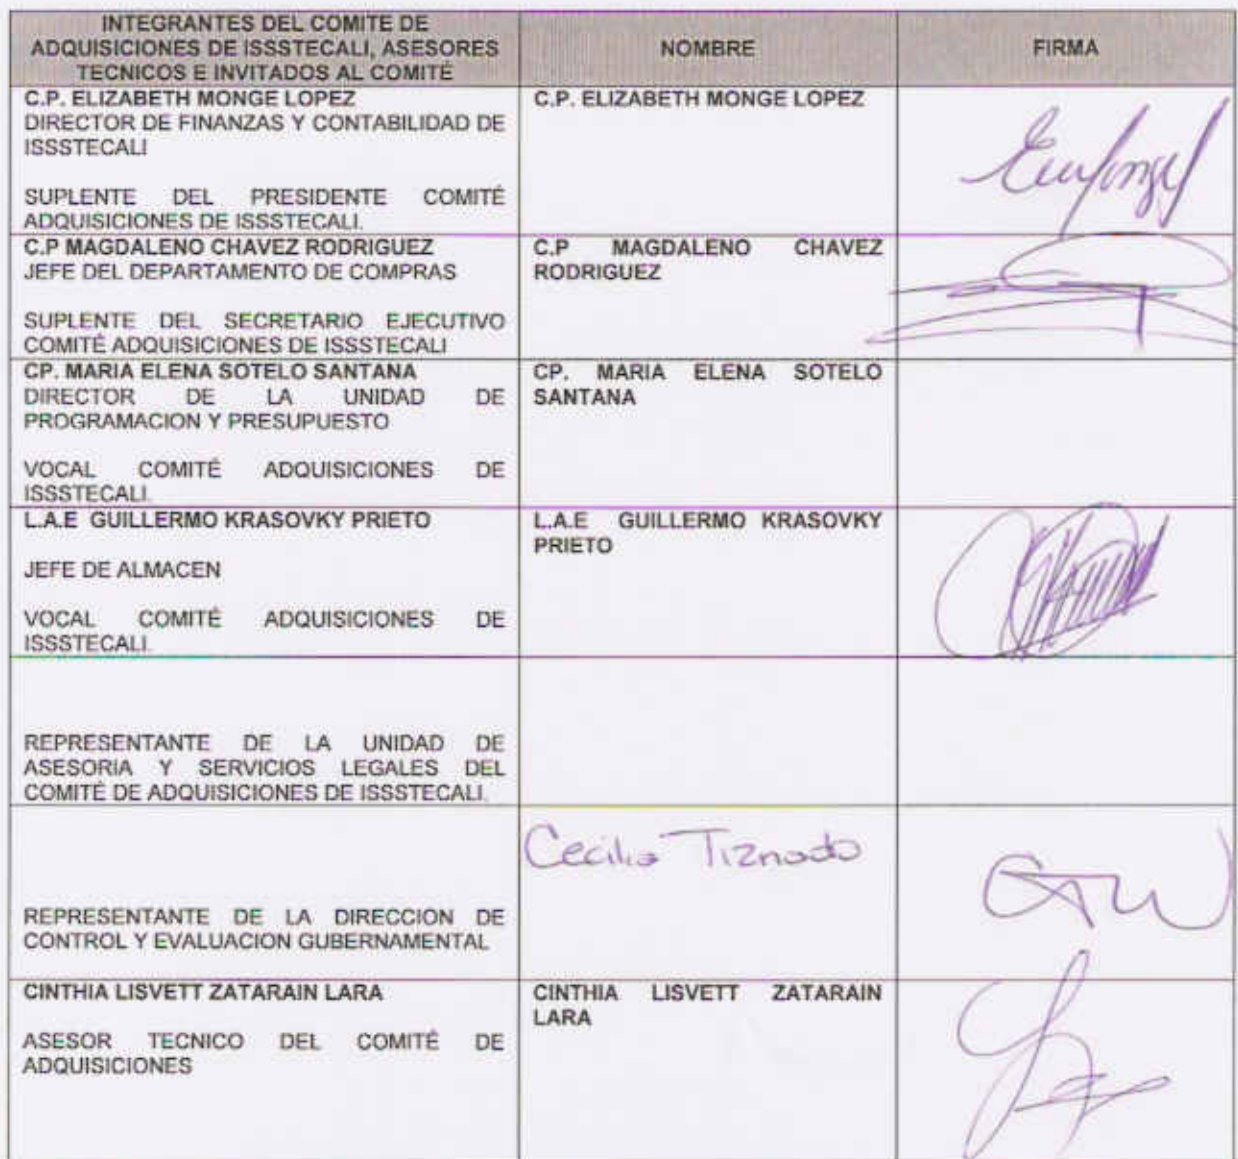 INTEGRANTES DEL COMITE DE
ADQUISICIONES DE ISSSTECALI, ASESORES
TECNICOS E INVITADOS AL COMITÉ
NOMBRE
FIRMA
C.P. ELIZABETH MONGE LOPEZ
DIRECTOR DE FINANZAS Y CONTABILIDAD DE
ISSSTECALI
SUPLENTE DEL PRESIDENTE COMITÉ
ADQUISICIONES DE ISSSTECALI.
C.P. ELIZABETH MONGE LOPEZ
C.P MAGDALENO CHAVEZ RODRIGUEZ
JEFE DEL DEPARTAMENTO DE COMPRAS
SUPLENTE DEL SECRETARIO EJECUTIVO
COMITÉ ADQUISICIONES DE ISSSTECALI
C.P MAGDALENO CHAVEZ
RODRIGUEZ
CP. MARIA ELENA SOTELO SANTANA
DIRECTOR DE LA UNIDAD DE
PROGRAMACION Y PRESUPUESTO
VOCAL COMITÉ ADQUISICIONES DE
ISSSTECALI.
CP. MARIA ELENA SOTELO
SANTANA
L.A.E GUILLERMO KRASOVKY PRIETO
JEFE DE ALMACEN
VOCAL COMITÉ ADQUISICIONES DE
ISSSTECALI.
L.A.E GUILLERMO KRASOVKY
PRIETO
REPRESENTANTE DE LA UNIDAD DE
ASESORIA Y SERVICIOS LEGALES DEL
COMITÉ DE ADQUISICIONES DE ISSSTECALI.
REPRESENTANTE DE LA DIRECCION DE
CONTROL Y EVALUACION GUBERNAMENTAL
Cecilia Tiznado
CINTHIA LISVETT ZATARAIN LARA
ASESOR TECNICO DEL COMITÉ DE
ADQUISICIONES
CINTHIA LISVETT ZATARAIN
LARA